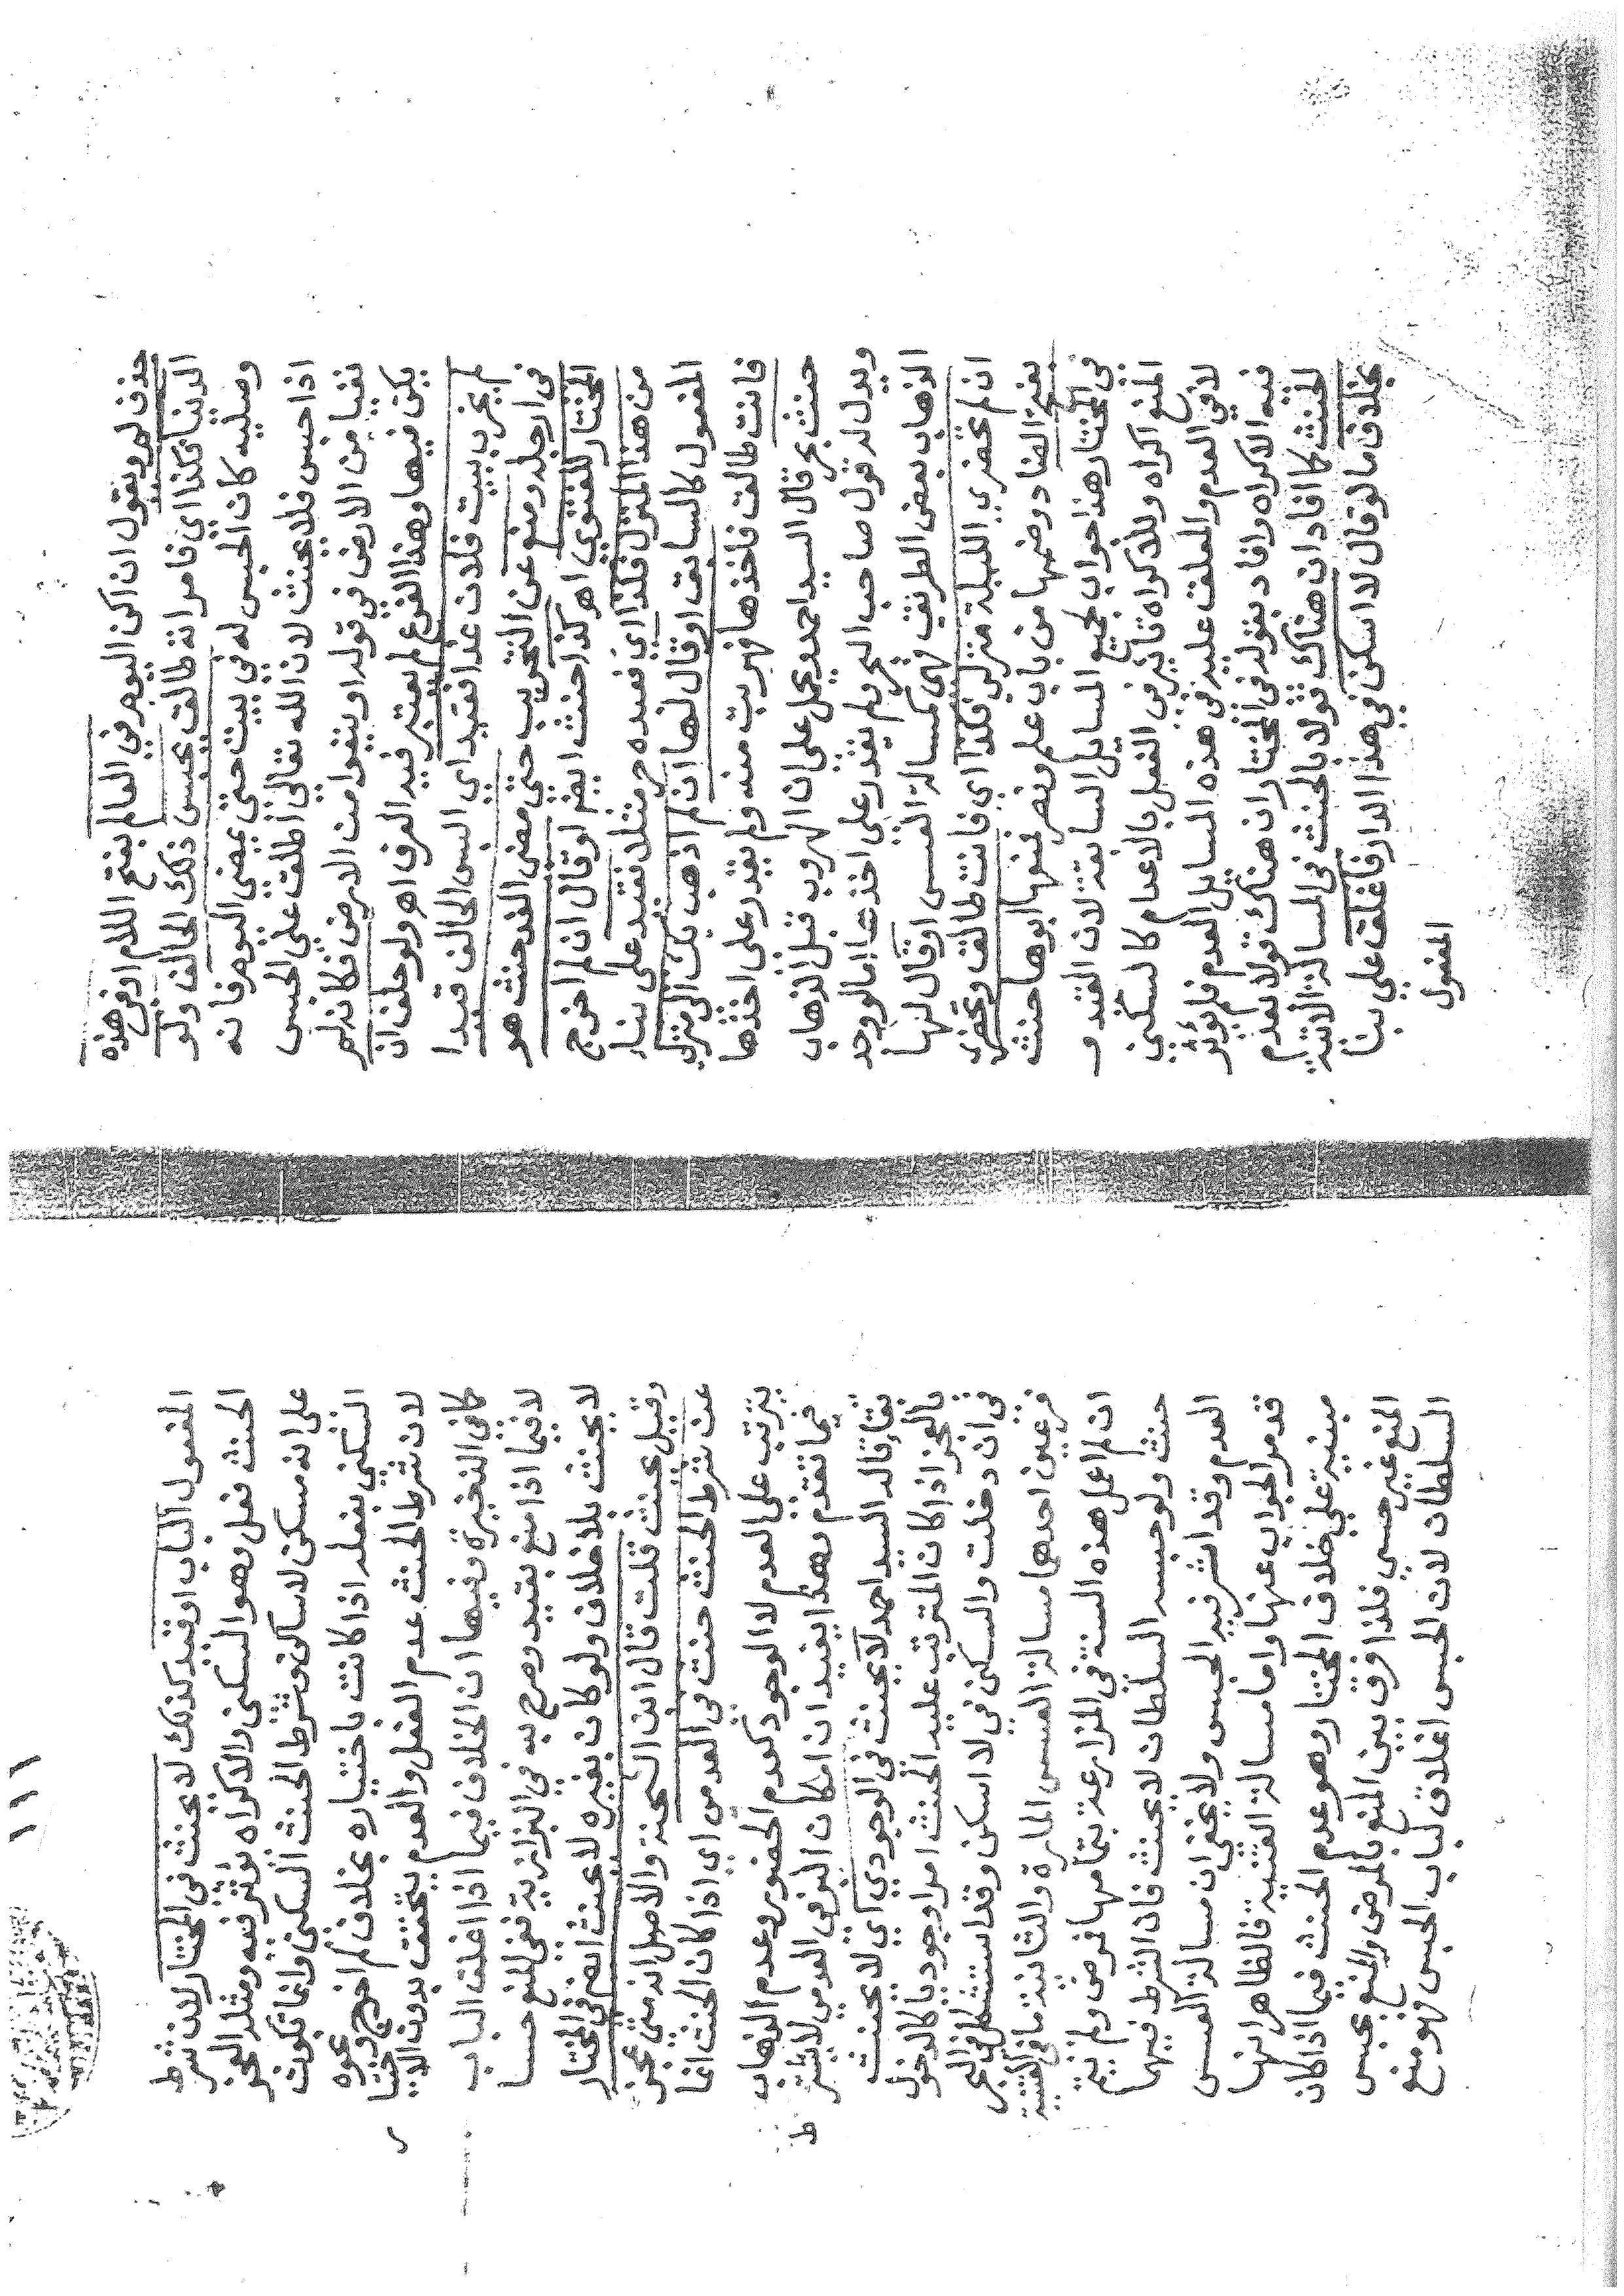 حذف لو ويقول ان اكن اليوم في العالم بفتح اللام او في هذه
الدنيا فكذا اي فامراته طالق يحبس ذلك الحالف ولو
وصليه كان الحبس له في بيت حتى يمضى اليوم فانه
اذا حبس فلا يحنث لان الله تعالى اطلق على الحبس
نفيا من الارض في قوله او ينفوا من الارض فكانه لم
يكن فيها وهذا الفرع لم يعتبر فيه العرف اهـ ولو حلف ان
لم يخرب بيت فلان غدا فقيد اي البس الحالف قيدا
في ارجله ومنع عن التخريب حتى مضى الغد حنث هو
المختار للفتوى اهـ وكذا حنث ايضا لو قال ان لم اخرج
من هذا المنزل فكذا اي فعبده حر مثلا فقيد على بناء
المفعول كالسابق او قال لها ان لم اذهب بك الى منزلي
فانت طالق فاخذها فهربت منه ولم يقدر على اخذها
حنث بحر قال السيد احمد ويحمل على ان الهروب قبل الذهاب
ويدل له قول صاحب البحر ولم يقدر على اخذها اما لو وجد
الذهاب بعض الطريق فهي كمسالة العسس او قال لها
ان لم تحضري الليلة منزلي فكذا اي فانت طالق وتحضري
بفتح الضاد وضمها من باب علم ونصر فمنعها ابوها حنث
في المختار هذا جواب لجميع المسايل السابقة لان القيد و
المنع اكراه وللاكراه تاثير في الفعل بالاعدام كالسكنى
لا في العدم والمعلق عليه في هذه المسايل العدم فلم يؤثر
فيه الاكراه وافاد بقوله في المختار ان هناك قولا بعدم
الحنث كما افاد ان هناك قولا بالحنث في المسالة الاتية
بخلاف ما لو قال لا اسكن في هذا الدار فاغلق على بنا
المفعول
١١١
المفعول الباب او قيد كذلك لا يحنث في المختار لان شرط
الحنث فعل وهو السكنى والاكراه يؤثر فيه ومثله العجز
على انه مسكن لا ساكن وشرط الحنث السكنى وانما تكون
السكنى بفعله اذا كانت باختياره بخلاف لم اخرج ونحوه
لان شرط الحنث عدم الفعل والعدم يتحقق بدون الاختيار
كما في الذخيرة وفيها ان الخلاف فيما اذا اغلق الباب
لا فيما اذا منع بقيد وصرح به في البزازية ففي المنع حسا
لا يحنث بلا خلاف ولو كان بغيره لا يحنث ايضا في المختار
وقيل يحنث قلت قال ابن الشحنة والاصل انه متى عجز
عن شرط الحنث حنث في العدمي اي اذا كان الحنث انما
يترتب على العدم لا الوجود كعدم الحضور وعدم الذهاب
فيما تقدم وهذا يفيد ان امكان البر في العدمي لا يشترط
بقاؤه قاله السيد احمد لا يحنث في الوجودي اي لا يحنث
بالعجز اذا كان المترتب عليه الحنث امرا وجوديا كالدخول
في ان دخلت والسكنى في لا اسكن وقد استشكل في البحر
فرعين احدها مسالة العسس المارة والثانية ما في القنية
ان لم اعمل هذه السنة في المزارعة بتمامها فمرض ولم يتم
حنث ولو حبسه السلطان لا يحنث فان الشرط فيهما
العدم وقد اشر فيه الحبس ولا يخفى ان مسالة العسس
قدمر الجواب عنها واما مسالة القنية فالظاهر انها
مبنية على خلاف المختار وهو عدم الحنث فيما اذا كان
المنع غير حسي فلذا فرق بين المنع بالمرض والمنع بحبس
السلطان لان الحبس اغلاق لباب الحبس فهو منع